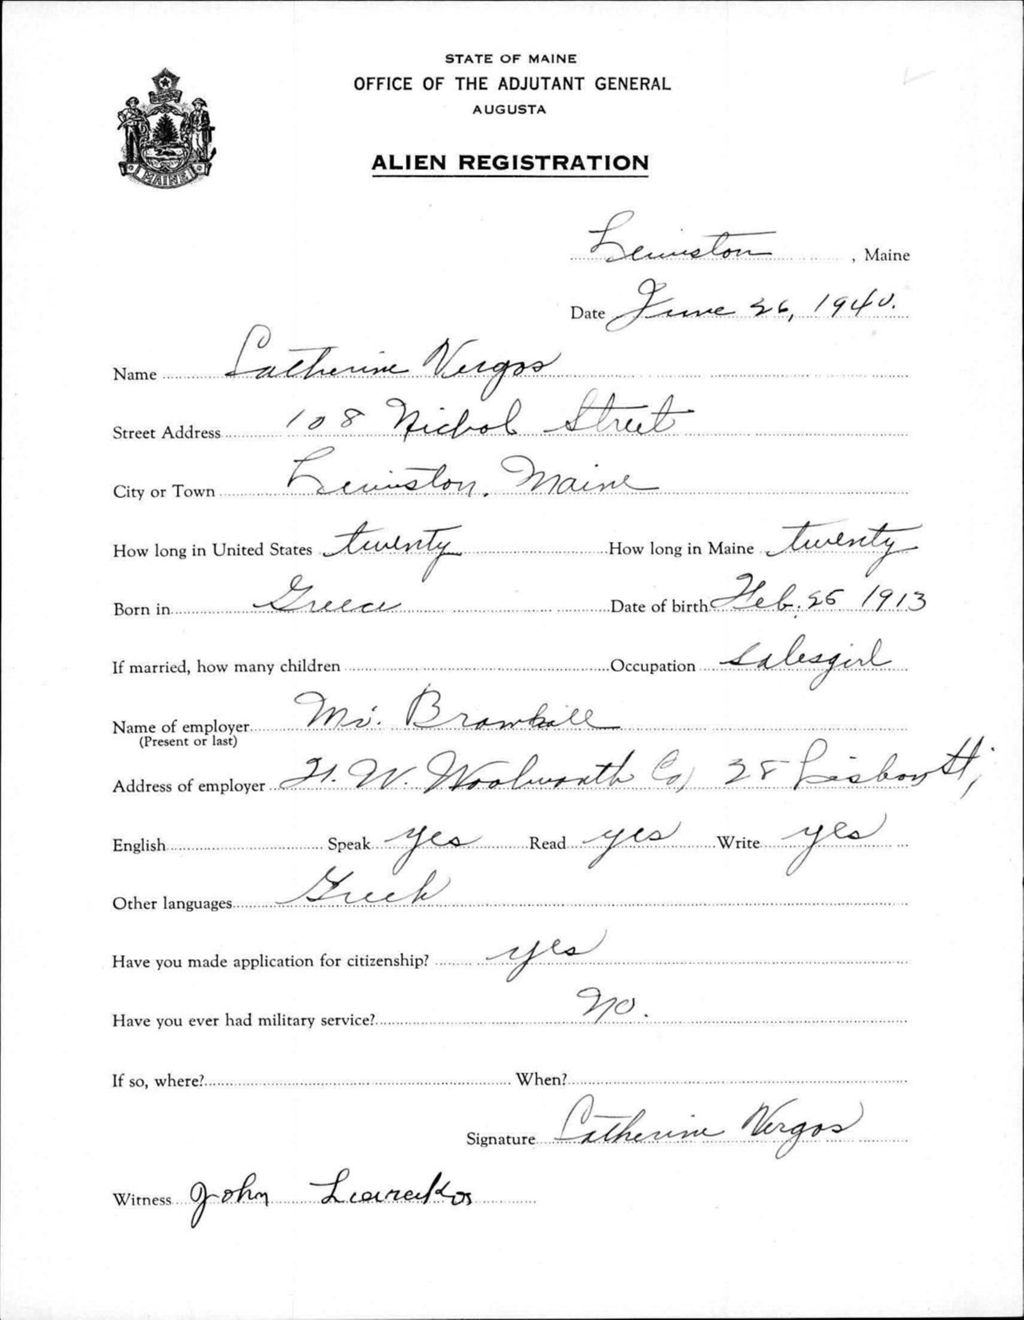 STATE OF MAINE
OFFICE OF THE ADJUTANT GENERAL
AUGUSTA
ALIEN REGISTRATION
MAINE
Lewiston, Maine
Date June 26, 1940.
Name Catherine Vergos
Street Address 108 Nichol Street
City or Town Lewiston, Maine
How long in United States twenty How long in Maine twenty
Born in Greece Date of birth Feb. 25 1913
If married, how many children Occupation salesgirl
Name of employer Mr. Bramhall
(Present or last)
Address of employer F. W. Woolworth Co, 28 Lisbon St,
English Speak yes Read yes Write yes
Other languages Greek
Have you made application for citizenship? yes
Have you ever had military service? No.
If so, where? When?
Signature Catherine Vergos
Witness John